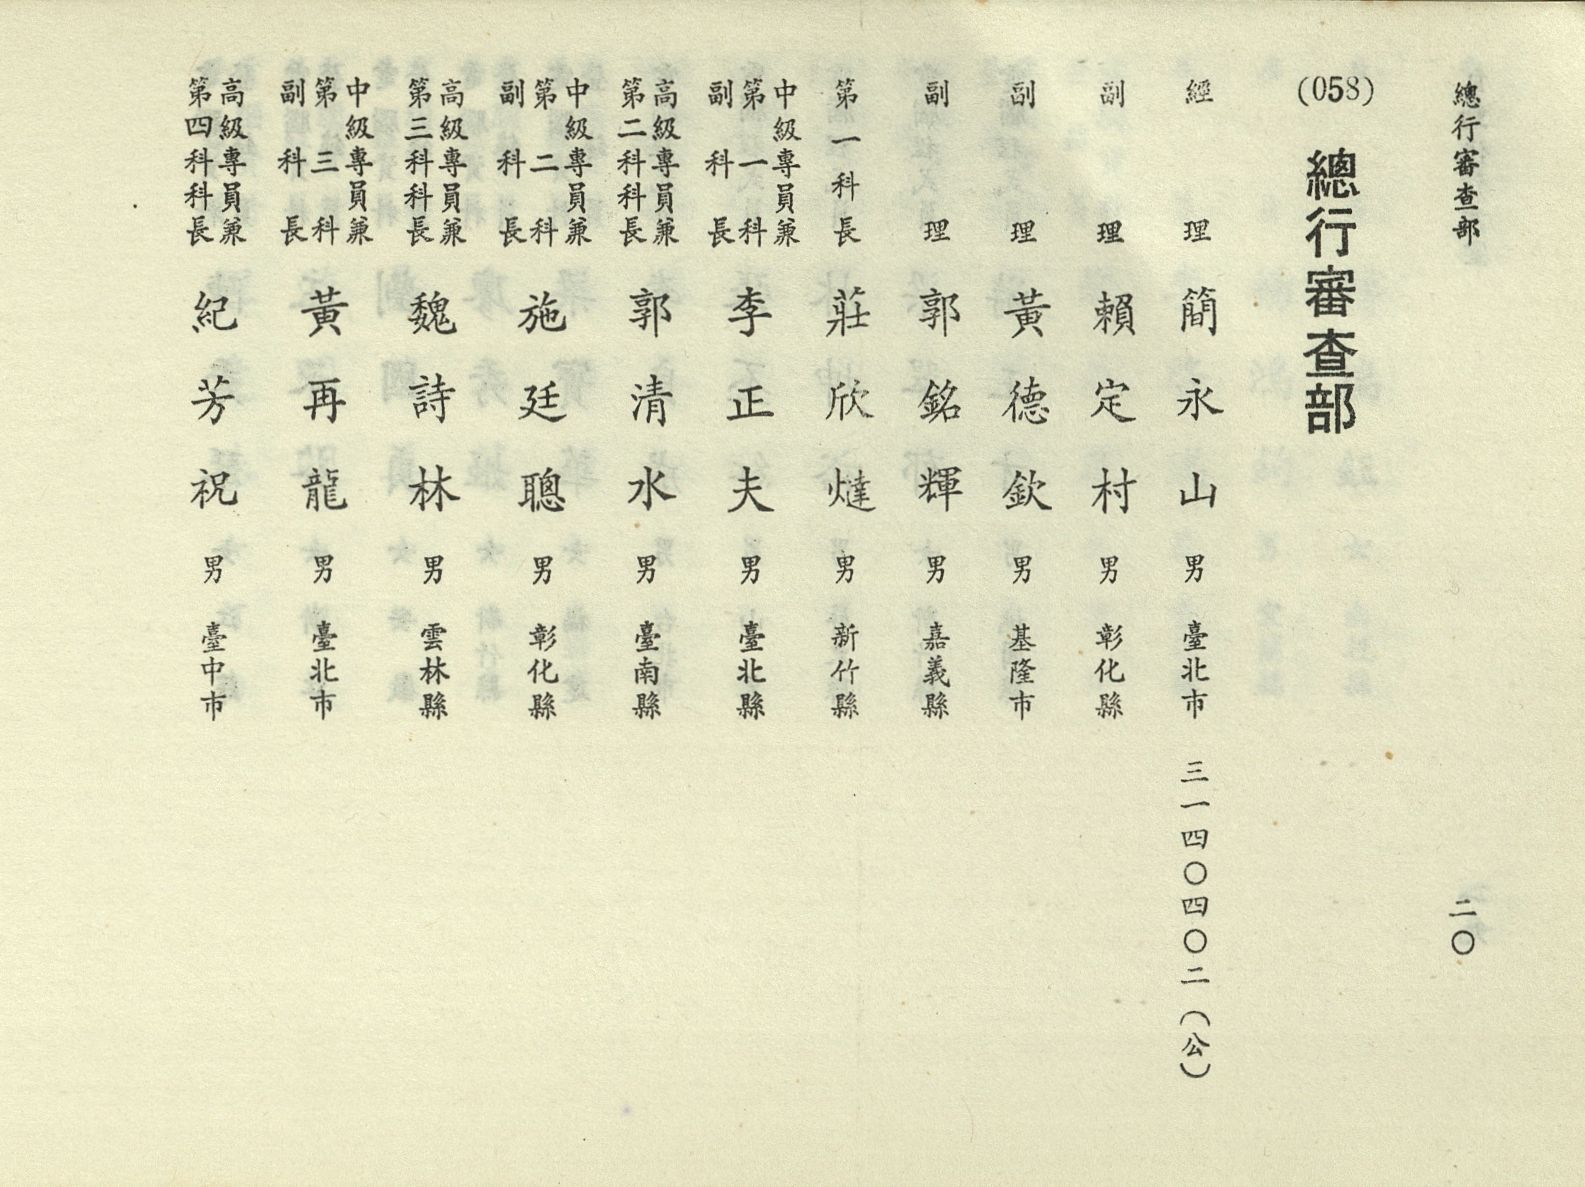 總行審查部 二〇
(058) 總行審查部
經理 簡永山 男 臺北市 三一四〇四〇二(公)
副理 賴定村 男 彰化縣
副理 黃德欽 男 基隆市
副理 郭銘輝 男 嘉義縣
第一科長 莊欣燵 男 新竹縣
中級專員兼第一科副科長 李正夫 男 臺北縣
高級專員兼第二科科長 郭清水 男 臺南縣
中級專員兼第二科副科長 施廷聰 男 彰化縣
高級專員兼第三科科長 魏詩林 男 雲林縣
中級專員兼第三科副科長 黃再龍 男 臺北市
高級專員兼第四科科長 紀芳祝 男 臺中市